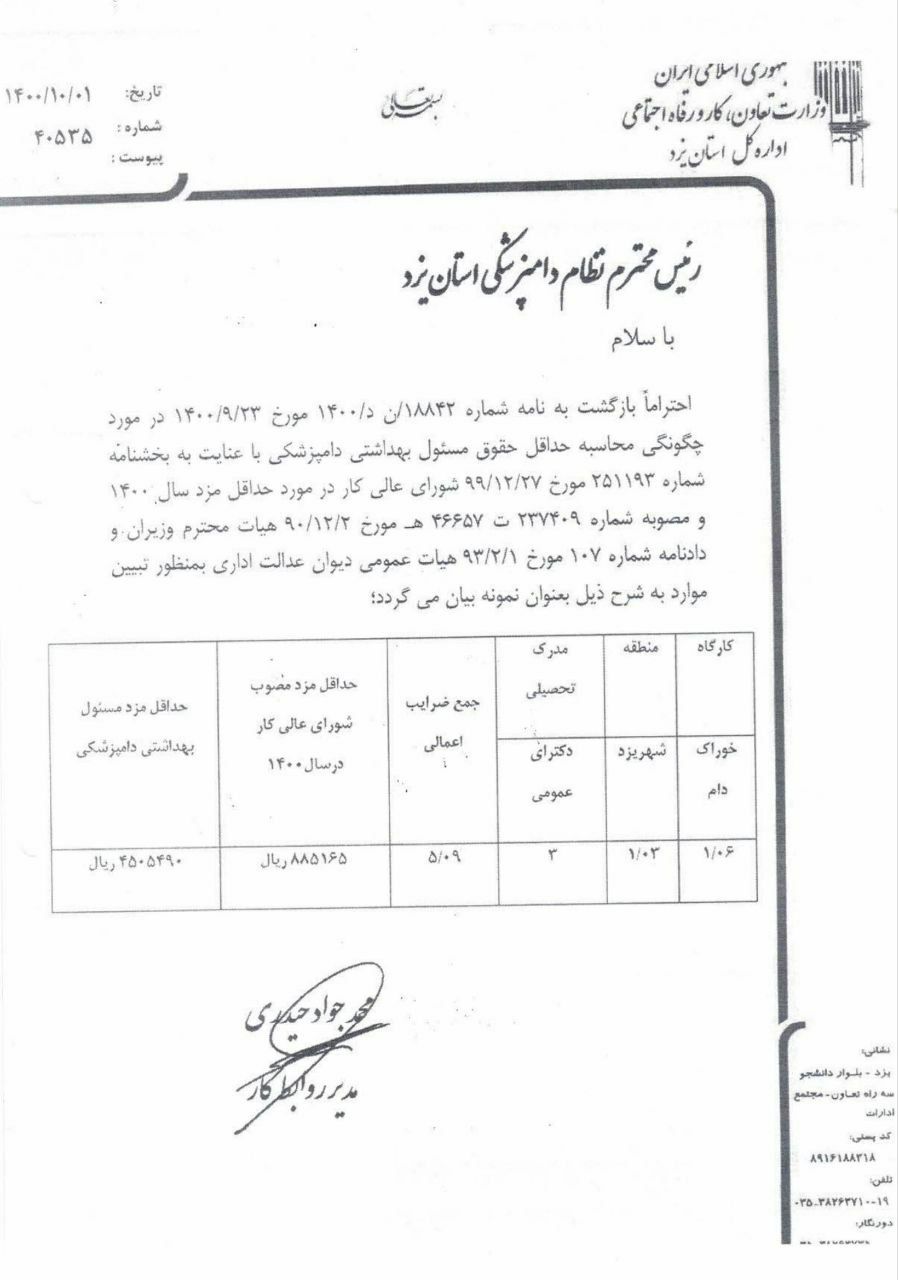 جمهوری اسلامی ایران
وزارت تعاون، کار و رفاه اجتماعی
اداره کل استان یزد
بسمه تعالی
تاریخ: ۱۴۰۰/۱۰/۰۱
شماره: ۴۰۵۳۵
پیوست:
رئیس محترم نظام دامپزشکی استان یزد
با سلام
احتراماً بازگشت به نامه شماره ۱۸۸۴۲/ن د/۱۴۰۰ مورخ ۱۴۰۰/۹/۲۳ در مورد
چگونگی محاسبه حداقل حقوق مسئول بهداشتی دامپزشکی با عنایت به بخشنامه
شماره ۲۵۱۱۹۳ مورخ ۹۹/۱۲/۲۷ شورای عالی کار در مورد حداقل مزد سال ۱۴۰۰
و مصوبه شماره ۲۳۷۴۰۹ ت ۴۶۶۵۷ هـ مورخ ۹۰/۱۲/۲ هیات محترم وزیران و
دادنامه شماره ۱۰۷ مورخ ۹۳/۲/۱ هیات عمومی دیوان عدالت اداری بمنظور تبیین
موارد به شرح ذیل بعنوان نمونه بیان می گردد؛
کارگاه
منطقه
مدرک
تحصیلی
جمع ضرایب
اعمالی
حداقل مزد مصوب
شورای عالی کار
درسال۱۴۰۰
حداقل مزد مسئول
بهداشتی دامپزشکی
خوراک
دام
شهریزد
دکترای
عمومی
۱/۰۶
۱/۰۳
۳
۵/۰۹
۸۸۵۱۶۵ ریال
۴۵۰۵۴۹۰ ریال
محمد جواد حیدری
مدیر روابط کار
نشانی:
یزد - بلوار دانشجو
سه راه تعاون- مجتمع
ادارات
کد پستی:
۸۹۱۶۱۸۸۳۱۸
تلفن:
۰۳۵-۳۸۲۶۳۷۱۰-۱۹
دورنگار: